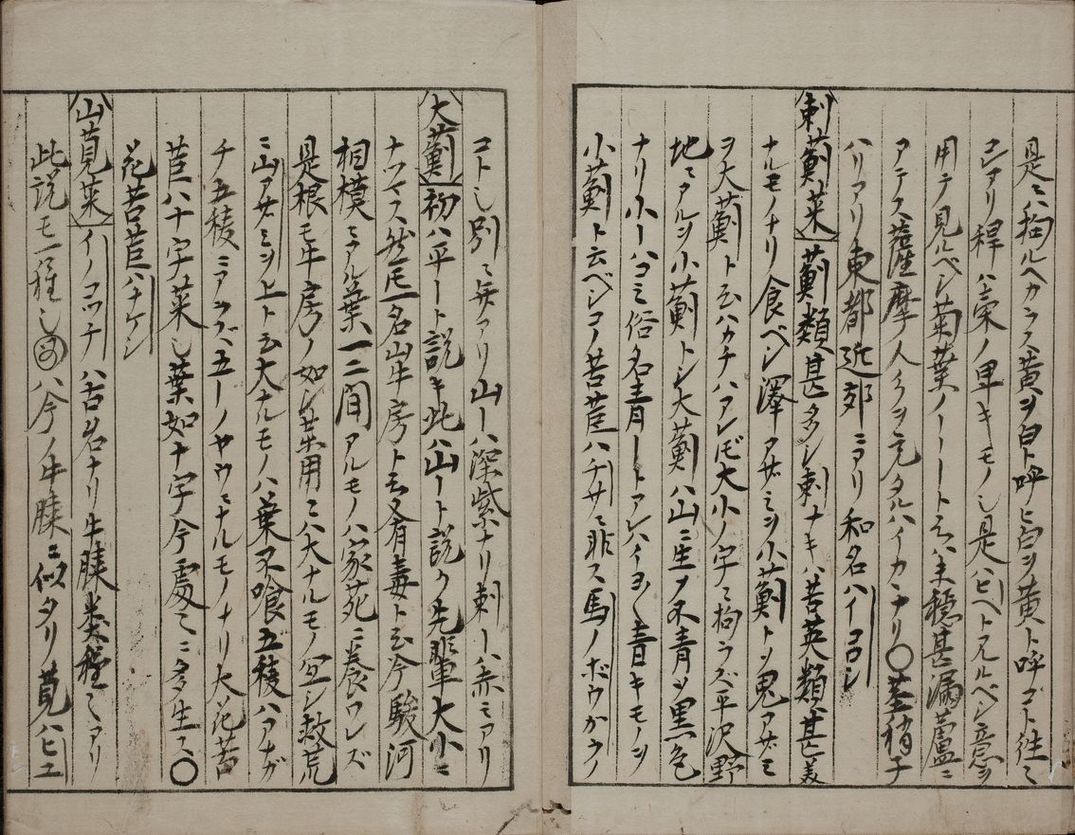 是ニ拘ルヘカラス黄ヲ白ト呼ヒ白ヲ黄ト呼ゴト往ミ
コレアリ稈ハ藁ノ甲キモノ也是ハヒヘトアルベシ意ヲ
用テ見ルベシ菊葉ノーートハ穏甚漏蘆ニ
アテス薩摩人タルハイカヾナリ〇茎稍子
ハリアリ東都近郊ニアリ和名ハイコロシ
刺薊菜 薊類甚多シ刺ナキハ苦英類甚美
ナルモノナリ食ベシ澤アザミヲ小薊トシ鬼アザミ
ヲ大薊ト云ハカチハアレ𪜈大小ノ字ニ拘ラズ平沢野
地ニアルヲ小薊トシ大薊ハ山ニ生ノ不青ヲ黒色
ナリ小ーハコミ俗名青ートアレハイヨ〱青キモノヲ
小薊ト云ベシコノ苦苣ハチサニ非ス馬ノボウカウノ
コト也別ニ無アリ山ーハ深紫ナリ刺ーハ赤ミアリ
大薊 初ハ平ート説キ此ハ山ート説ク先輩大小ニ
ナツマス然𪜈一名山牛房ト云又有毒ト云今駿河
相模ニアル葉一二間アルモノハ家苑ニ養ワレズ
是根モ牛房ノ如シ薬用ニハ大ナルモノ宜シ救荒
ニ山アザミヲ上ト云大ナルモノハ葉不喰五稜ハアナガ
チ五稜ニアラズ五ーノヤウニナルモノナリ大花苦
苣ハ十字菜也葉如十字今処〻ニ多生ス〇
花苦苣ハナケシ
山莧菜 イノコツチハ古名ナリ牛膝モ種〻アリ
此説モ一種也図ハ今ノ牛膝ニ似タリ莧ハヒエ